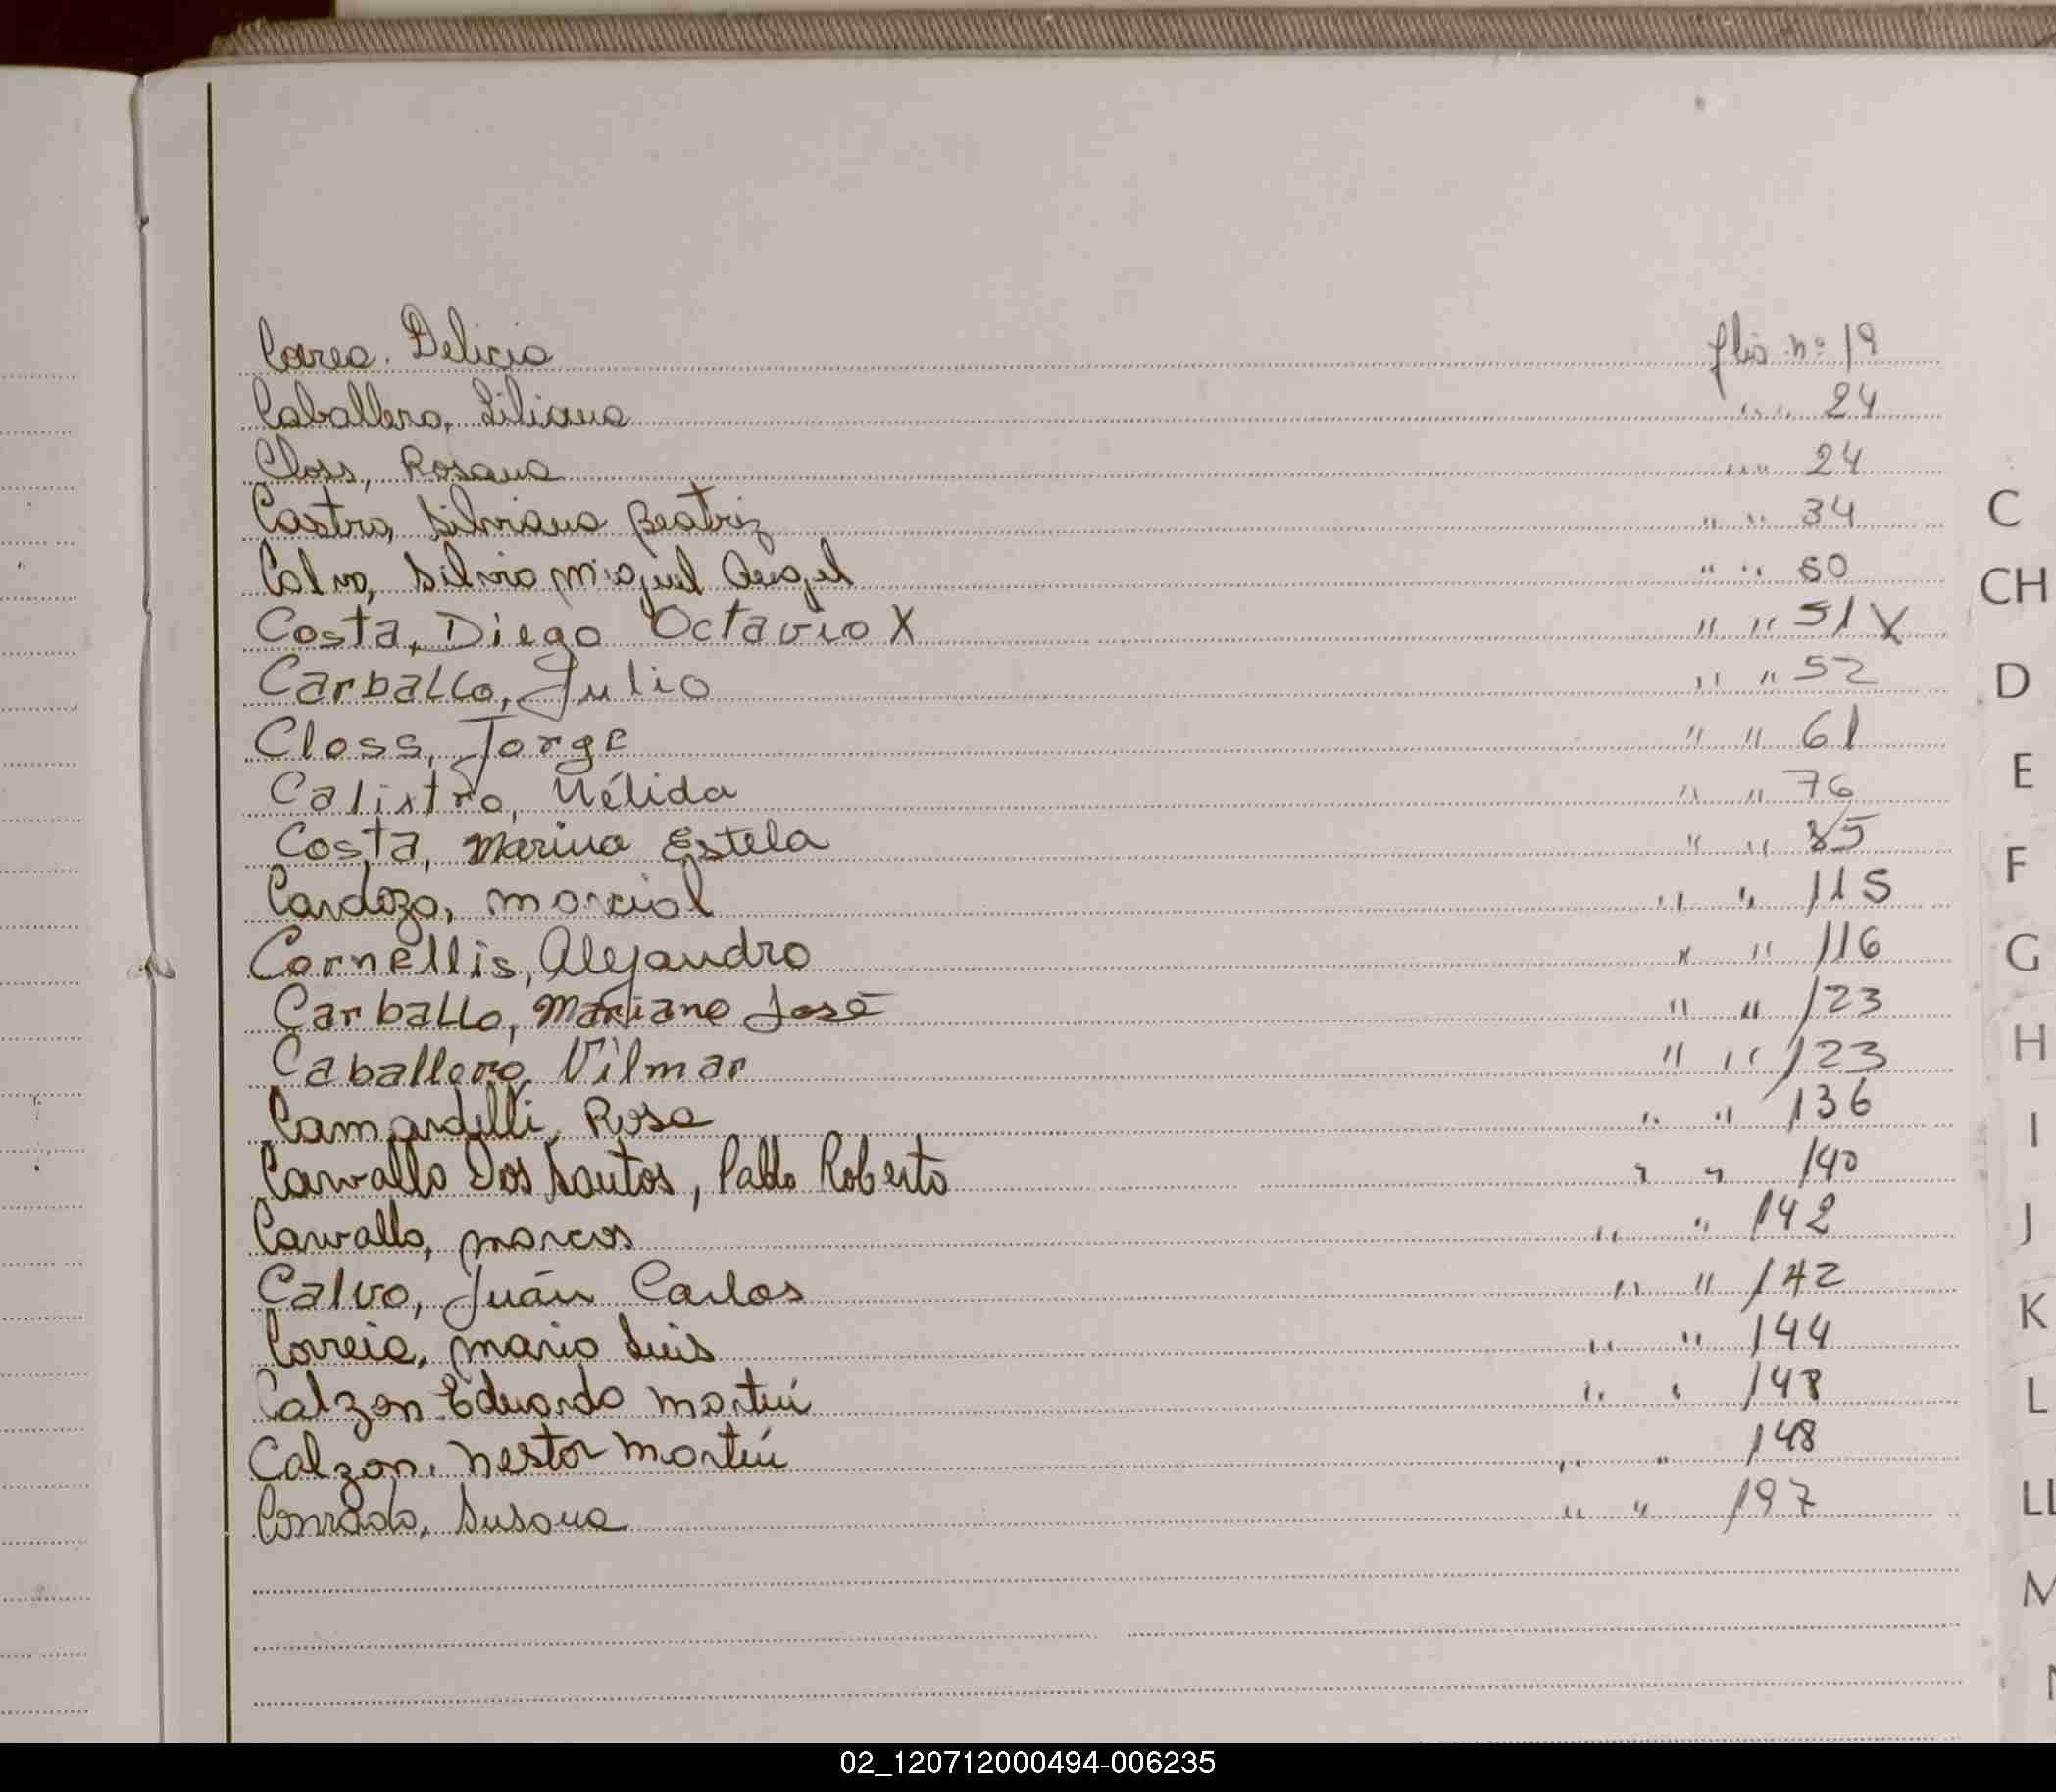 Correa. Delicia flio nº 19
Caballero, Liliana " " 24
Closs, Rosana " " 24
Castro, Silviana Beatriz " " 34
Calvo, Silvio Miguel Angel " " 50
Costa, Diego Octavio X " " 51 X
Carballo, Julio " " 52
Closs, Jorge " " 61
Calixtro, Nélida " " 76
Costa, Marina Estela " " 85
Cardozo, Marcial " " 115
Cornellis, Alejandro " " 116
Carballo, Mariano José " " 123
Caballero, Vilmar " " 123
Camardelli, Rosa " " 136
Carvallo Dos Santos, Pablo Roberto " " 140
Carvallo, Marcos " " 142
Calvo, Juán Carlos " " 142
Correia, Mario Luis " " 144
Calzon Eduardo Martín " " 148
Calzon, Nestor Martín " " 148
Conrado, Susana " " 197
C
CH
D
E
F
G
H
I
J
K
L
LL
M
02_120712000494-006235